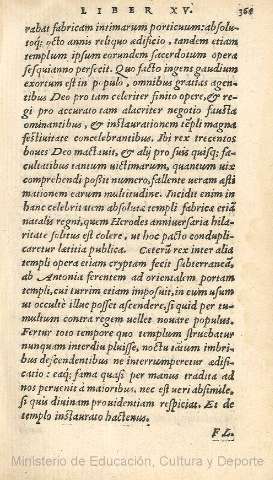 LIBER XV. 368
rabat fabricam intimarum porticuum: absolu-
toq; octo annis reliquo ædificio, tandem etiam
templum ipsum eorundem sacerdotum opera
sesquianno perfecit. Quo facto ingens gaudium
exortum est in populo, omnibus gratias agen-
tibus Deo pro tam celeriter finito opere, & re
gi pro accurato tam alacriter negotio fausta
ominantibus, & instaurationem tēpli magna
festiuitate concelebrantibus. Ibi rex trecentos
boues Deo mactauit, & alij pro suis quisq; fa-
cultatibus tantum uictimarum, quantum uix
comprehendi possit numero, sallene ueram æsti
mationem earum multitudine. Incidit enim in
hanc celebritatem absoluta templi fabrica etiā
natalis regni, quem Herodes anniuersaria hila-
ritate festus est colere, ut hoc pacto condupli-
caretur lætitia publica. Cæterū rex inter alia
templi opera etiam cryptam fecit subterraneā,
ab Antonia ferentem ad orientalem portam
templi, cui turrim etiam imposuit, in eum usum
ut occultè illuc posset ascendere, si quid per tu-
multum contra regem uellet nouare populus.
Fertur toto tempore quo templum struebatur
nunquam interdiu pluisse, noctu tātum imbri-
bus descendentibus ne interrumperetur ædifi-
catio: eaq; fama quasi per manus tradita ad
nos peruenit à maioribus, nec est ueri absimile,
si quis diuinam prouidentiam respiciat. Et de
templo instaurato hactenus.
FL.
Ministerio de Educación, Cultura y Deporte